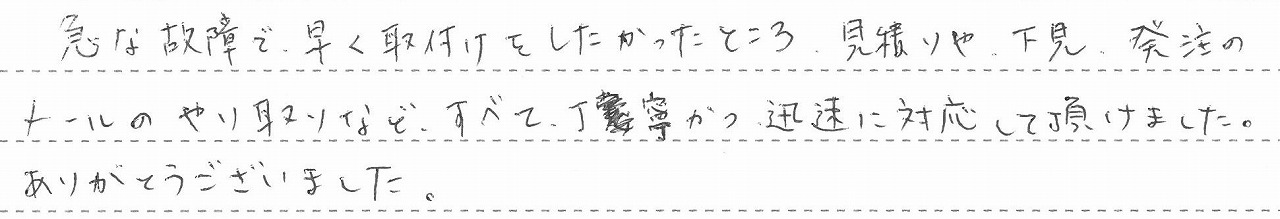 急な故障で、早く取付けをしたかったところ、見積りや、下見、発注の
メールのやり取りなど、すべて、丁寧かつ、迅速に対応して頂けました。
ありがとうございました。